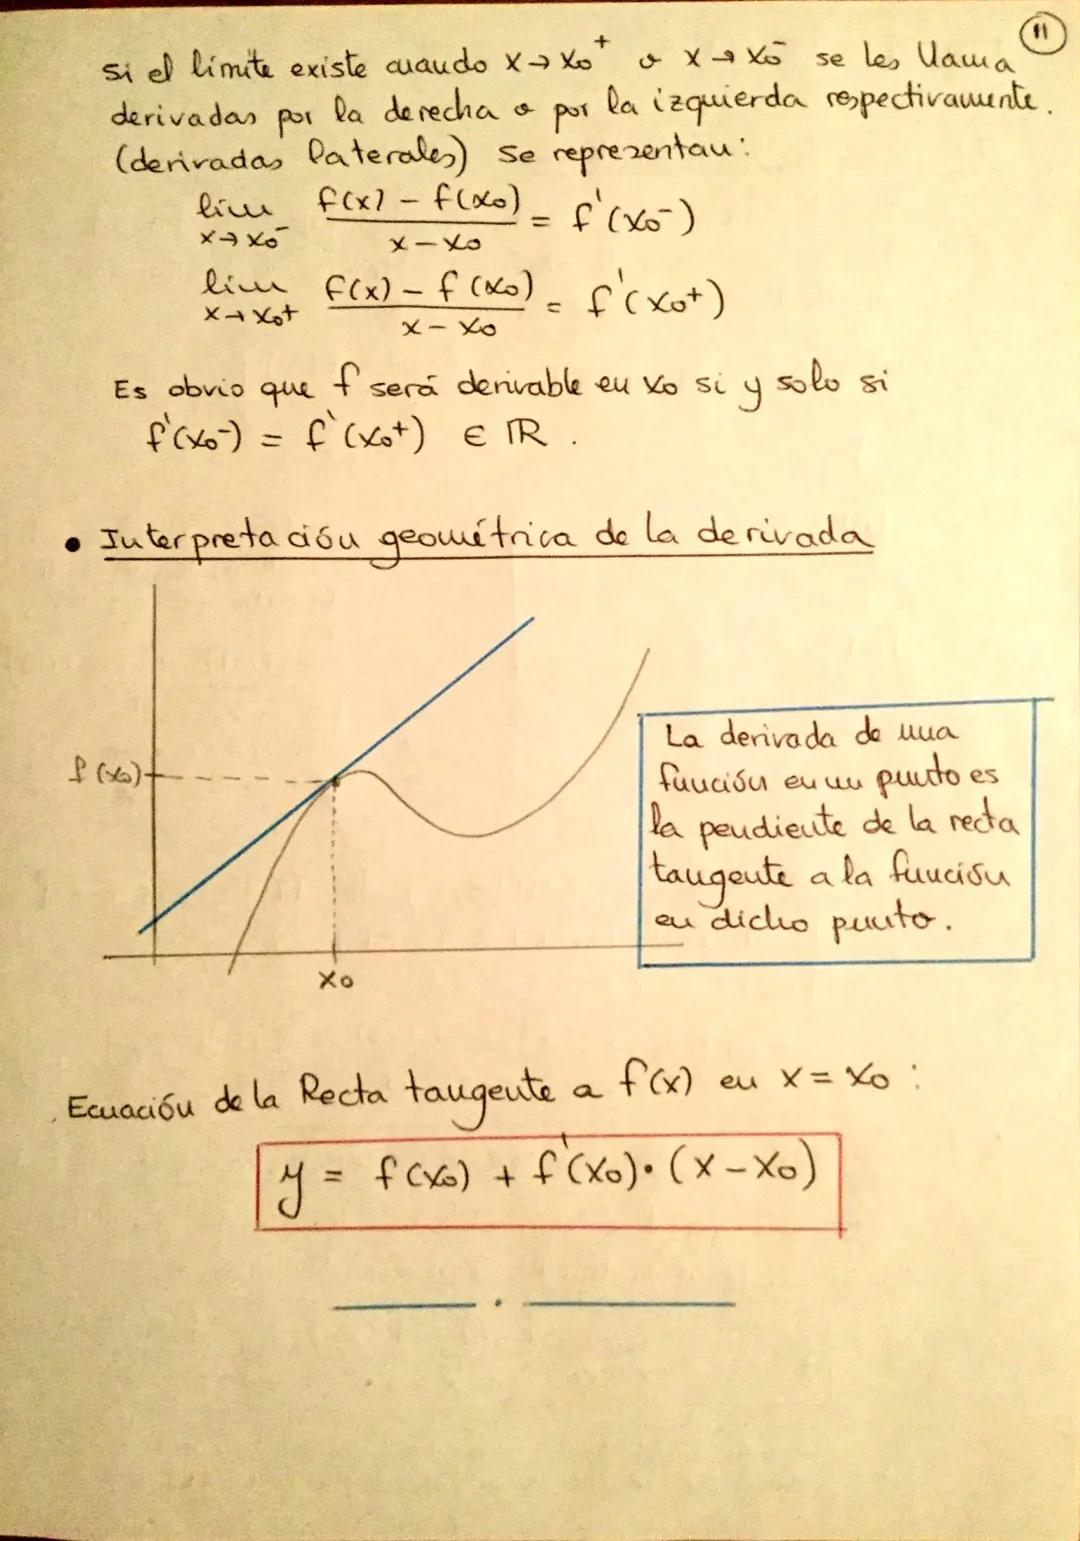 11
si el límite existe cuando x→x₀⁺ o x→x₀⁻ se les llama
derivadas por la derecha o por la izquierda respectivamente.
(derivadas laterales) se representan:
lim f(x) - f(x₀) = f'(x₀⁻)
x→x₀⁻ x-x₀
lim f(x) - f(x₀) = f'(x₀+)
x→x₀+ x-x₀
Es obvio que f será derivable en x₀ si y solo si
f'(x₀-) = f'(x₀+) ∈ ℝ.
• Interpretación geométrica de la derivada
f(x₀)
x₀
La derivada de una
función en un punto es
la pendiente de la recta
tangente a la función
en dicho punto.
Ecuación de la Recta tangente a f(x) en x = x₀ :
y = f(x₀) + f'(x₀)·(x-x₀)